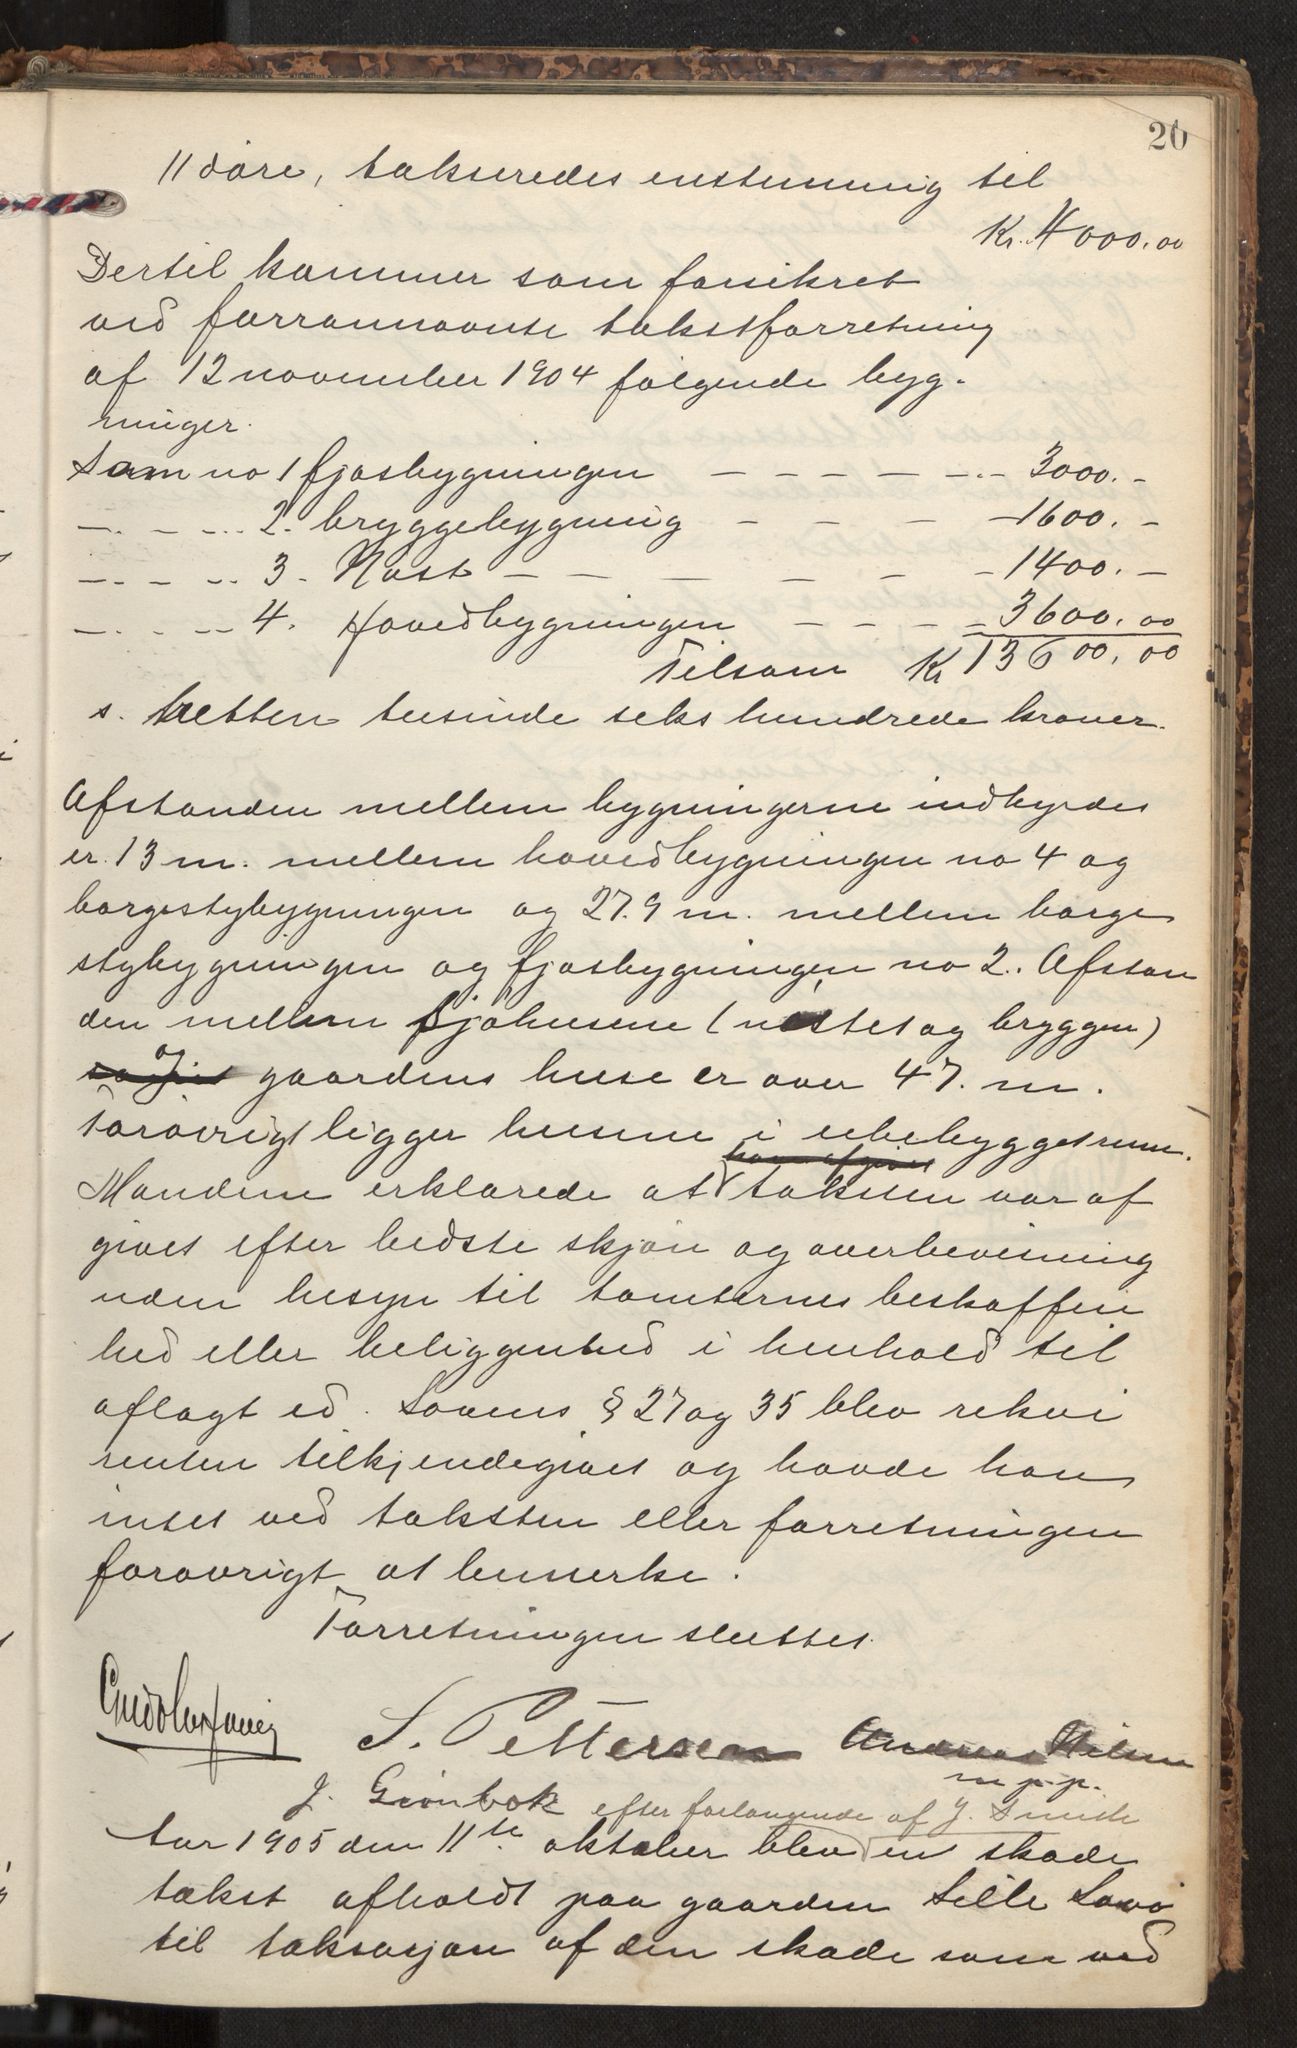 20
11 döre, takseredes enstemmig til
Kr. 4000.00
Dertil kommer som forsikret
ved forrannævnte takstforretning
af 12 november 1904 følgende byg-
ninger.
Som no 1 fjøsbygningen — — — — — 3000.-
—.. — ... 2. bryggebygning — — — — 1600.-
—.. — .. 3 - Nøst — — — — — — 1400.-
—.. — .. 4. Hovedbygningen — — — — 3600.00
Tilsam Kr 13600,00
s. tretten tusinde seks hundrede kroner.
Afstanden mellem bygningerne indbyrdes
er 13 m. mellem hovedbygningen no 4 og
borgestybygningen og 27.9 m. mellem borge
stybygningen og fjøsbygningen no 2. Afstan
den mellem sjøhusene (nøstet og bryggen)
og gaardens huse er over 47. m.
Forøvrigt ligger husene i ubebygget rum.
Mændene erklærede at taksten var af
givet efter bedste skjøn og overbevisning
uden hesyn til tomternes beskaffen
hed eller beliggenhed i henhold til
aflagt ed. Lovens § 27 og 35 blev rekvi
renten tilkjendegivet og havde han
intet ved taksten eller forretningen
forøvrigt at bemerke.
Forretningen sluttet.
S. Pettersen Andreas Nilsen
m.p.p.
J. Grønbek efter forlangende af J. Smith
Aar 1905 den 11te oktober blev en skade
takst afholdt paa gaarden Lille Lovø
til taksasjon af den skade som ved